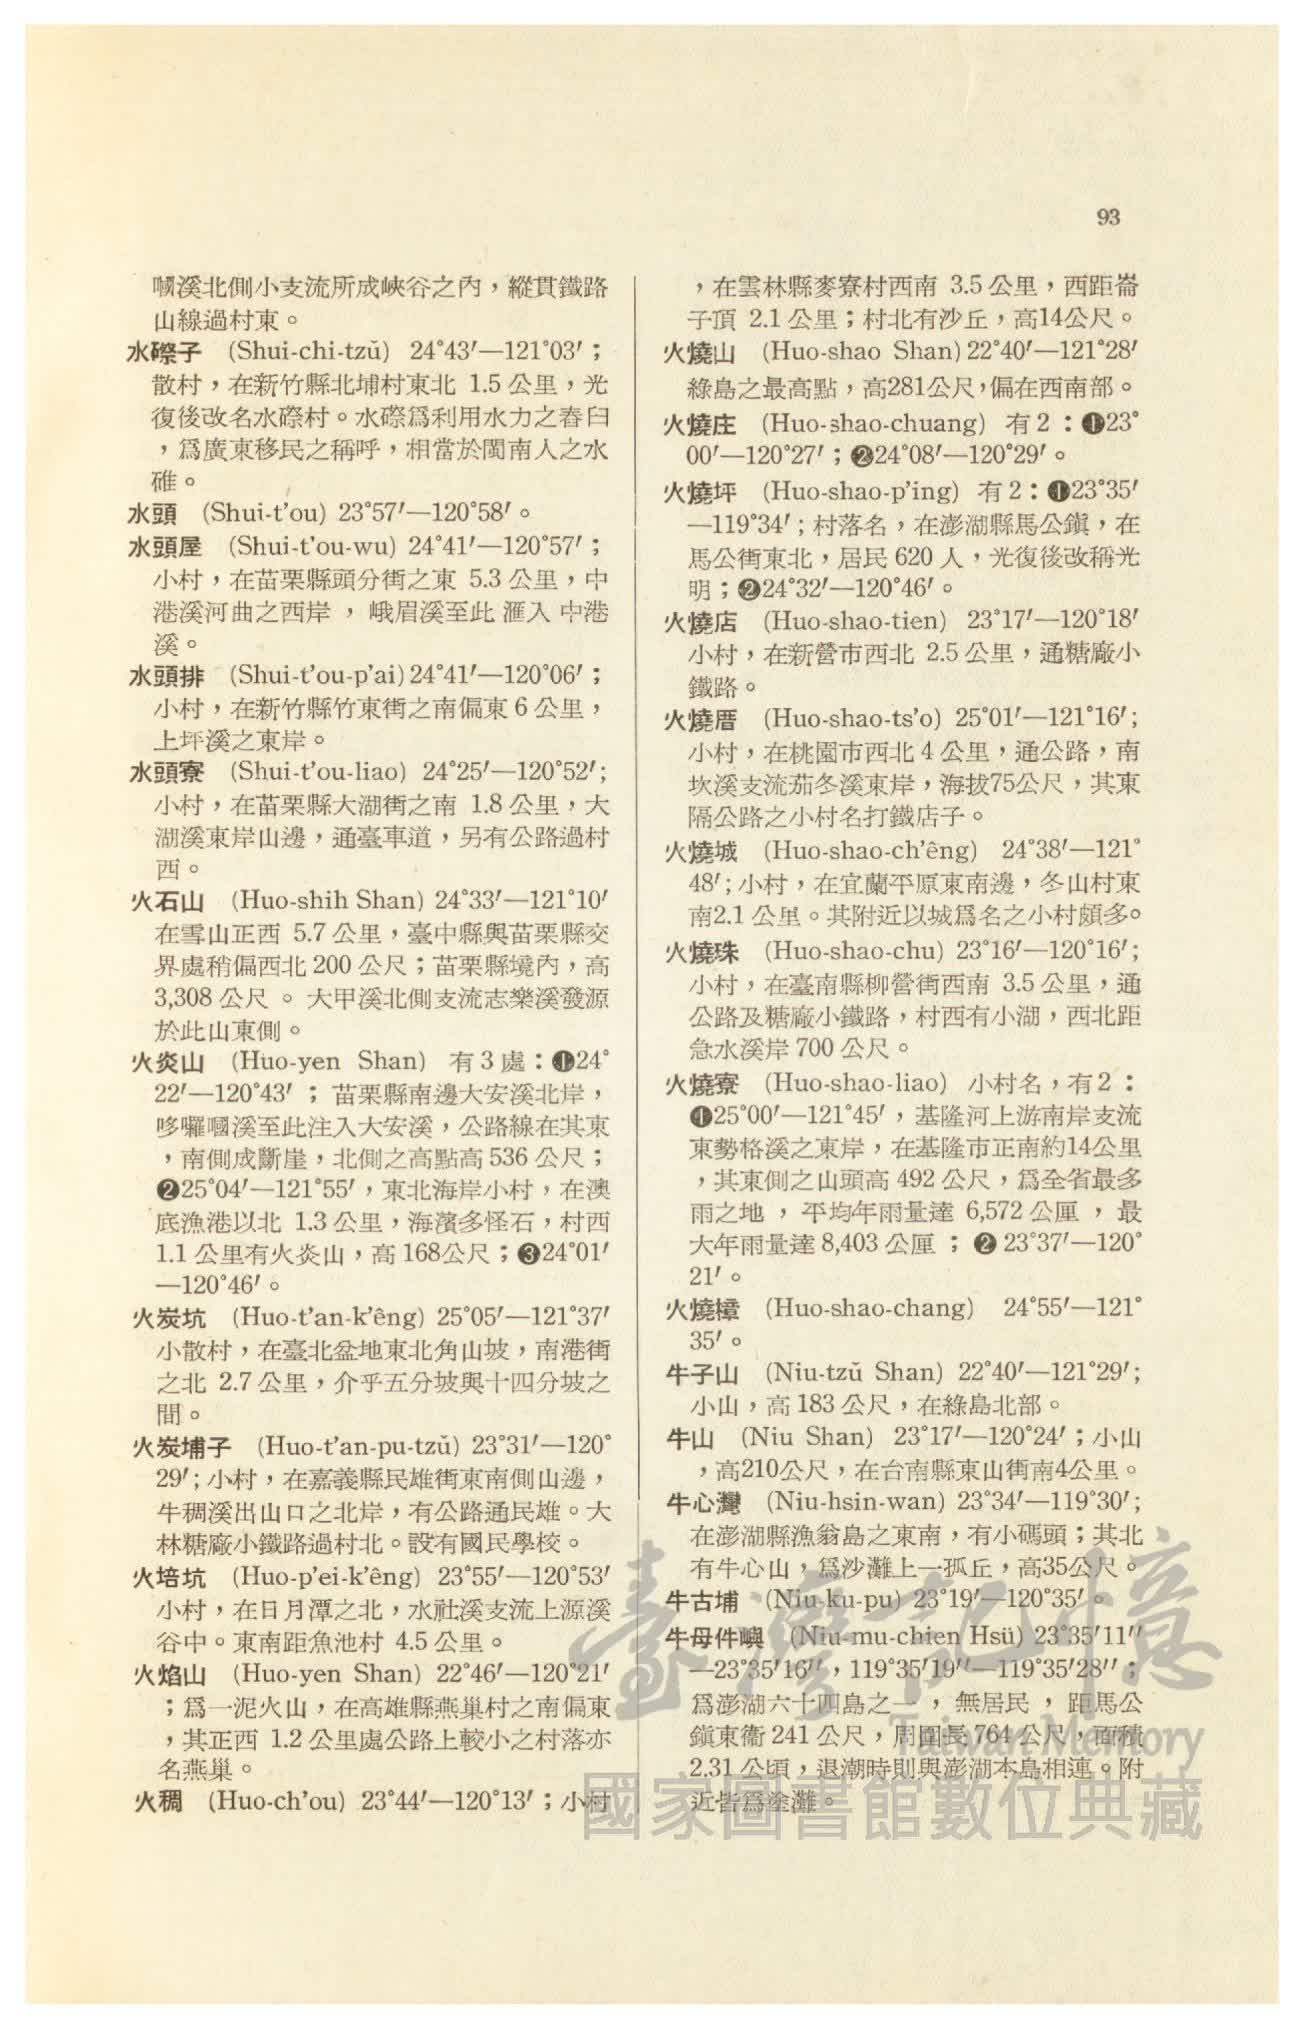 93
嘓溪北側小支流所成峽谷之內，縱貫鐵路
山線過村東。
水磜子 (Shui-chi-tzŭ) 24°43′—121°03′；
散村，在新竹縣北埔村東北 1.5 公里，光
復後改名水磜村。水磜爲利用水力之舂臼
，爲廣東移民之稱呼，相當於閩南人之水
碓。
水頭 (Shui-t'ou) 23°57′—120°58′。
水頭屋 (Shui-t'ou-wu) 24°41′—120°57′；
小村，在苗栗縣頭分街之東 5.3 公里，中
港溪河曲之西岸，峨眉溪至此滙入中港
溪。
水頭排 (Shui-t'ou-p'ai) 24°41′—120°06′；
小村，在新竹縣竹東街之南偏東 6 公里，
上坪溪之東岸。
水頭寮 (Shui-t'ou-liao) 24°25′—120°52′；
小村，在苗栗縣大湖街之南 1.8 公里，大
湖溪東岸山邊，通臺車道，另有公路過村
西。
火石山 (Huo-shih Shan) 24°33′—121°10′
在雪山正西 5.7 公里，臺中縣與苗栗縣交
界處稍偏西北 200 公尺；苗栗縣境內，高
3,308 公尺。大甲溪北側支流志樂溪發源
於此山東側。
火炎山 (Huo-yen Shan) 有 3 處：❶24°
22′—120°43′；苗栗縣南邊大安溪北岸，
哆囉嘓溪至此注入大安溪，公路線在其東
，南側成斷崖，北側之高點高 536 公尺；
❷25°04′—121°55′，東北海岸小村，在澳
底漁港以北 1.3 公里，海濱多怪石，村西
1.1 公里有火炎山，高 168公尺；❸24°01′
—120°46′。
火炭坑 (Huo-t'an-k'êng) 25°05′—121°37′
小散村，在臺北盆地東北角山坡，南港街
之北 2.7 公里，介乎五分坡與十四分坡之
間。
火炭埔子 (Huo-t'an-pu-tzŭ) 23°31′—120°
29′；小村，在嘉義縣民雄街東南側山邊，
牛稠溪出山口之北岸，有公路通民雄。大
林糖廠小鐵路過村北。設有國民學校。
火培坑 (Huo-p'ei-k'êng) 23°55′—120°53′
小村，在日月潭之北，水社溪支流上源溪
谷中。東南距魚池村 4.5 公里。
火焰山 (Huo-yen Shan) 22°46′—120°21′
；爲一泥火山，在高雄縣燕巢村之南偏東
，其正西 1.2 公里處公路上較小之村落亦
名燕巢。
火稠 (Huo-ch'ou) 23°44′—120°13′；小村
，在雲林縣麥寮村西南 3.5 公里，西距崙
子頂 2.1 公里；村北有沙丘，高14公尺。
火燒山 (Huo-shao Shan) 22°40′—121°28′
綠島之最高點，高281公尺，偏在西南部。
火燒庄 (Huo-shao-chuang) 有 2：❶23°
00′—120°27′；❷24°08′—120°29′。
火燒坪 (Huo-shao-p'ing) 有 2：❶23°35′
—119°34′；村落名，在澎湖縣馬公鎭，在
馬公街東北，居民 620 人，光復後改稱光
明；❷24°32′—120°46′。
火燒店 (Huo-shao-tien) 23°17′—120°18′
小村，在新營市西北 2.5 公里，通糖廠小
鐵路。
火燒厝 (Huo-shao-ts'o) 25°01′—121°16′；
小村，在桃園市西北 4 公里，通公路，南
坎溪支流茄冬溪東岸，海拔75公尺，其東
隔公路之小村名打鐵店子。
火燒城 (Huo-shao-ch'êng) 24°38′—121°
48′；小村，在宜蘭平原東南邊，冬山村東
南2.1 公里。其附近以城爲名之小村頗多。
火燒珠 (Huo-shao-chu) 23°16′—120°16′；
小村，在臺南縣柳營街西南 3.5 公里，通
公路及糖廠小鐵路，村西有小湖，西北距
急水溪岸 700 公尺。
火燒寮 (Huo-shao-liao) 小村名，有 2：
❶25°00′—121°45′，基隆河上游南岸支流
東勢格溪之東岸，在基隆市正南約14公里
，其東側之山頭高 492 公尺，爲全省最多
雨之地，平均年雨量達 6,572 公厘，最
大年雨量達 8,403 公厘；❷ 23°37′—120°
21′。
火燒樟 (Huo-shao-chang) 24°55′—121°
35′。
牛子山 (Niu-tzŭ Shan) 22°40′—121°29′；
小山，高 183 公尺，在綠島北部。
牛山 (Niu Shan) 23°17′—120°24′；小山
，高210公尺，在台南縣東山街南4公里。
牛心灣 (Niu-hsin-wan) 23°34′—119°30′；
在澎湖縣漁翁島之東南，有小碼頭；其北
有牛心山，爲沙灘上一孤丘，高35公尺。
牛古埔 (Niu-ku-pu) 23°19′—120°35′。
牛母件嶼 (Niu-mu-chien Hsü) 23°35′11″
—23°35′16″，119°35′19″—119°35′28″；
爲澎湖六十四島之一，無居民，距馬公
鎭東衞 241 公尺，周圍長 764 公尺，面積
2.31 公頃，退潮時則與澎湖本島相連。附
近皆爲塗灘。
臺灣記憶
Taiwan Memory
國家圖書館數位典藏